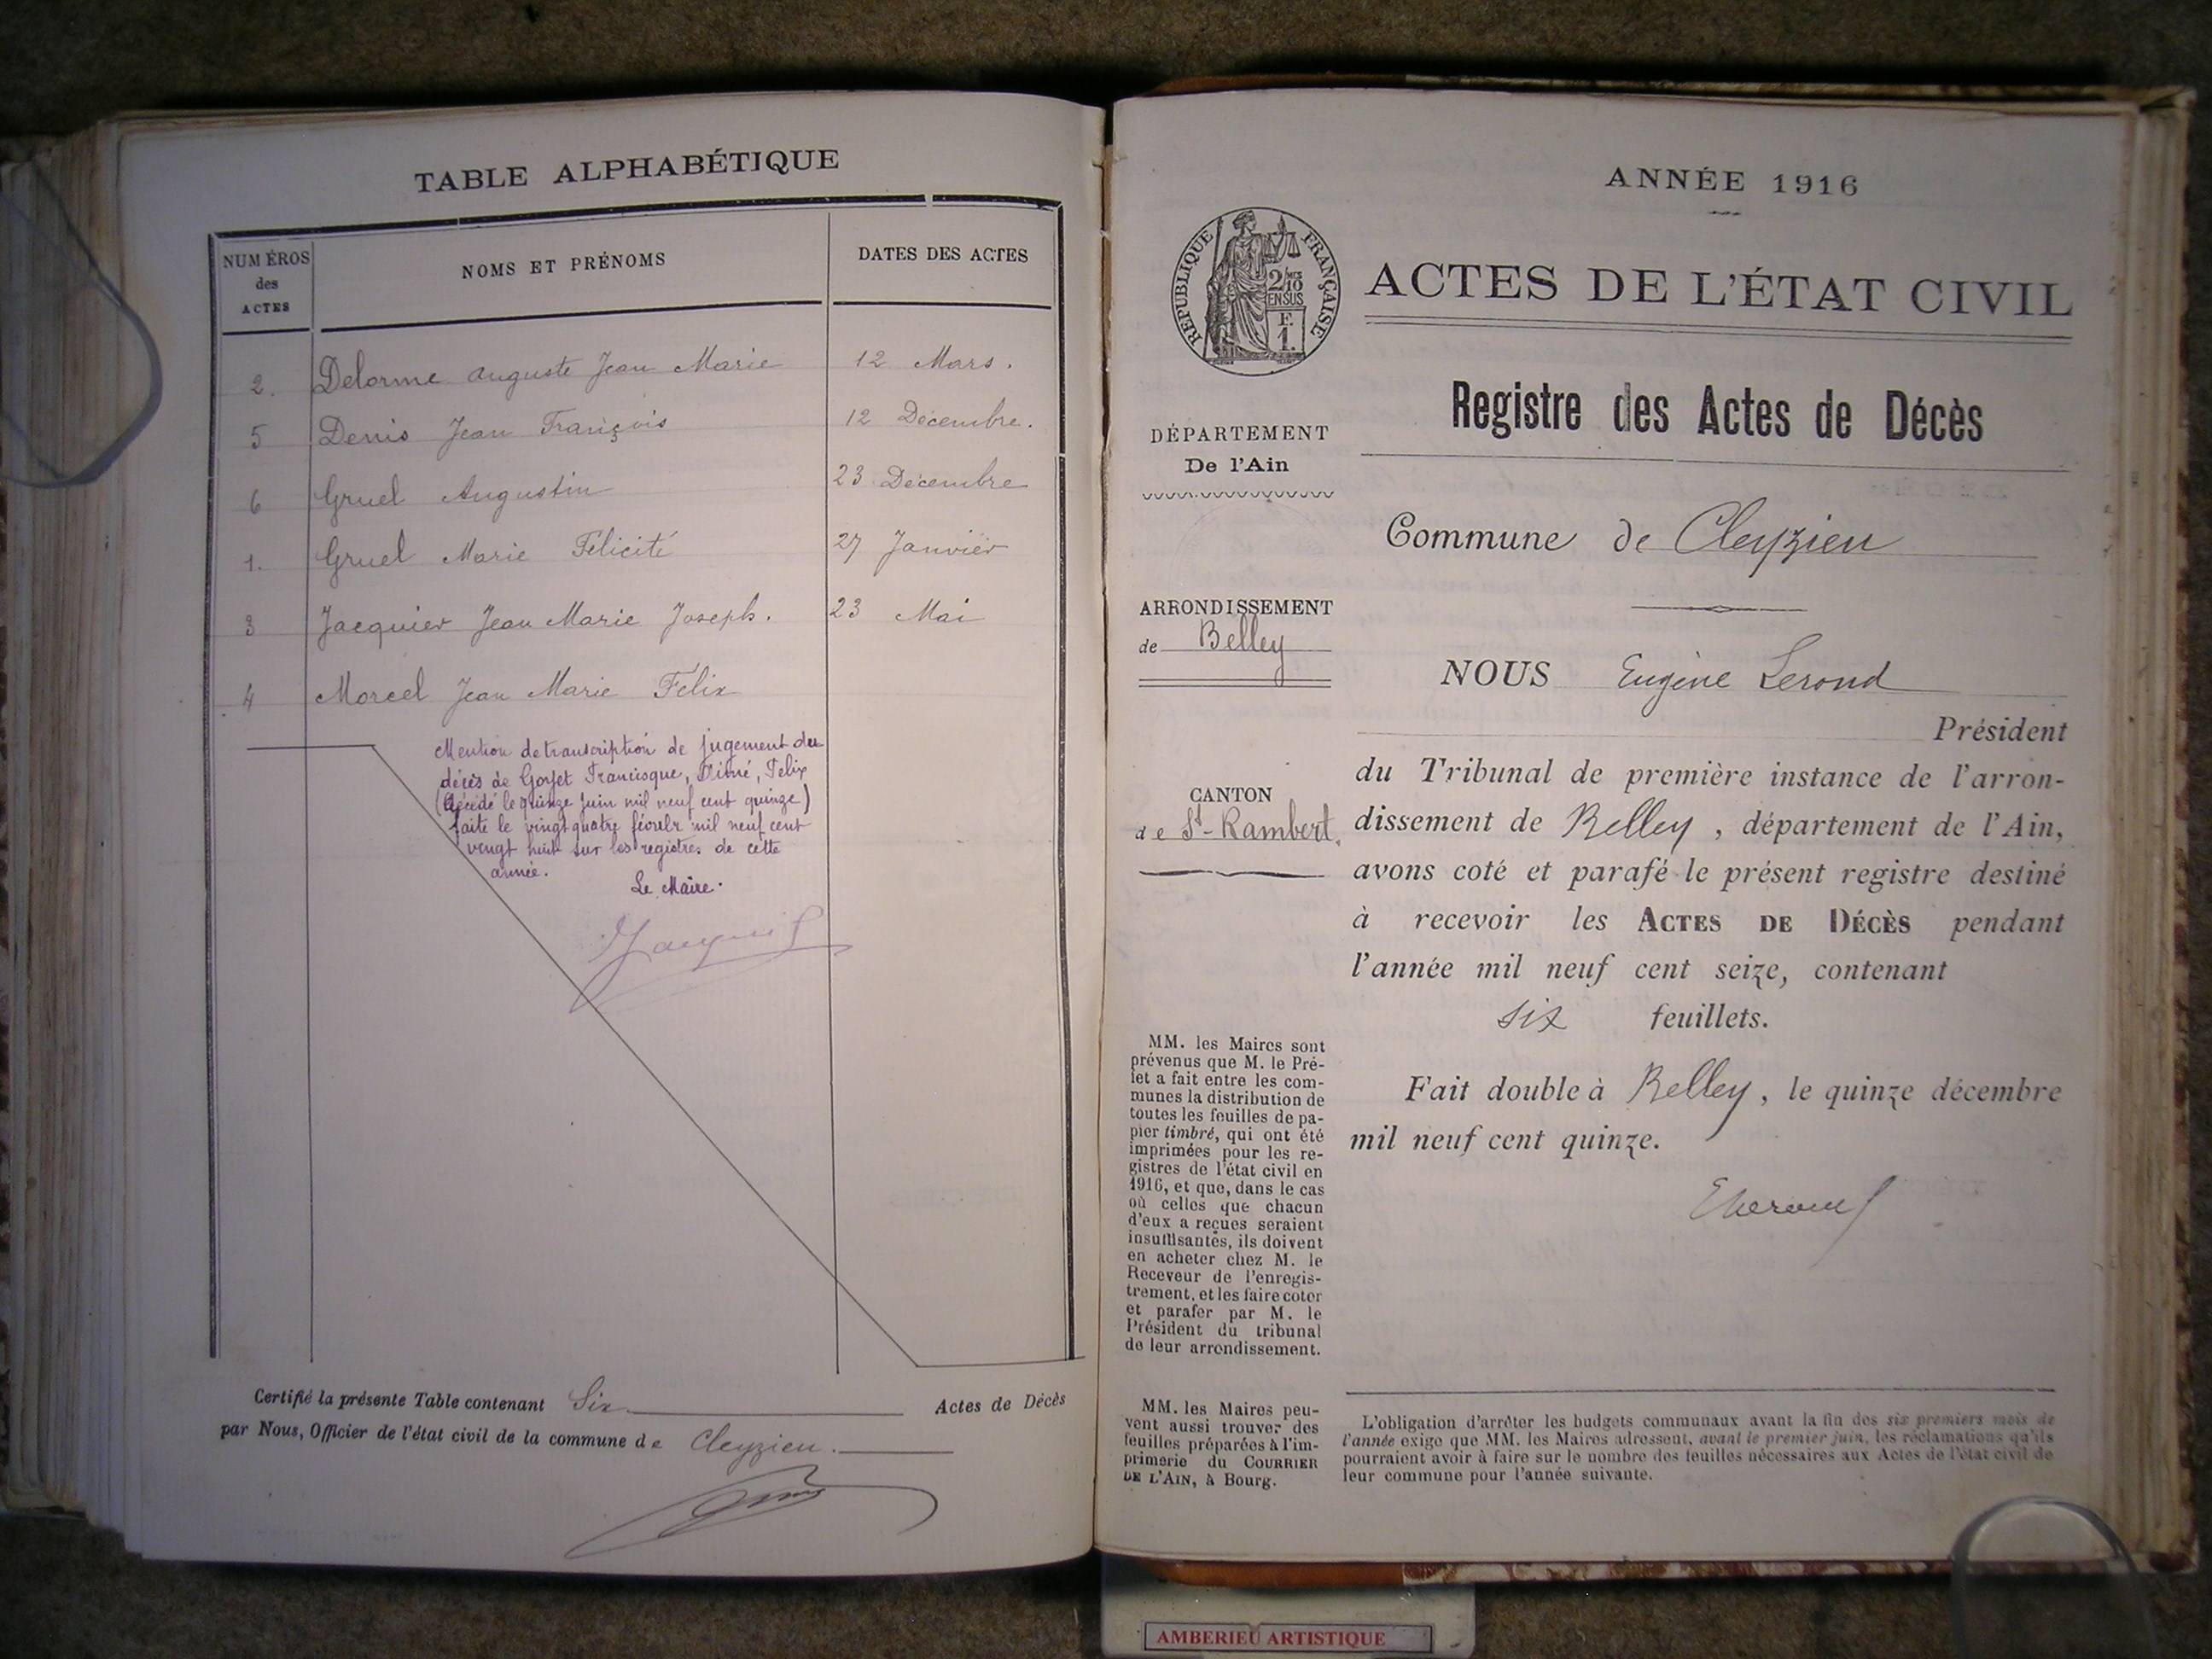 TABLE ALPHABÉTIQUE
NUMÉROS des ACTES
NOMS ET PRÉNOMS
DATES DES ACTES
2. Delorme Auguste Jean Marie 12 Mars.
5 Denis Jean François 12 Décembre.
6 Gruel Augustin 23 Décembre
1. Gruel Marie Félicité 27 Janvier
3 Jacquier Jean Marie Joseph. 23 Mai
4 Morcel Jean Marie Félix
Mention de transcription de jugement du
décès de Goyet Francisque, Félix
(décédé le quinze juin mil neuf cent quinze)
faite le vingt quatre mil neuf cent
vingt huit sur les registres de cette
année.
Le Maire.
Certifié la présente Table contenant Six Actes de Décès
par Nous, Officier de l'état civil de la commune de Cleyzieu.
ANNÉE 1916
RÉPUBLIQUE FRANÇAISE
2/10 MES
EN SUS
F.
1.
ACTES DE L'ÉTAT CIVIL
Registre des Actes de Décès
DÉPARTEMENT
De l'Ain
Commune de Cleyzieu
ARRONDISSEMENT
de Belley
CANTON
de St-Rambert.
NOUS Eugène Lerond
Président
du Tribunal de première instance de l'arron-
dissement de Belley, département de l'Ain,
avons coté et parafé le présent registre destiné
à recevoir les ACTES DE DÉCÈS pendant
l'année mil neuf cent seize, contenant
six feuillets.
Fait double à Belley, le quinze décembre
mil neuf cent quinze.
MM. les Maires sont
prévenus que M. le Pré-
fet a fait entre les com-
munes la distribution de
toutes les feuilles de pa-
pier timbré, qui ont été
imprimées pour les re-
gistres de l'état civil en
1916, et que, dans le cas
où celles que chacun
d'eux a reçues seraient
insuffisantes, ils doivent
en acheter chez M. le
Receveur de l'enregis-
trement, et les faire coter
et parafer par M. le
Président du tribunal
de leur arrondissement.
MM. les Maires peu-
vent aussi trouver des
feuilles préparées à l'im-
primerie du COURRIER
DE L'AIN, à Bourg.
L'obligation d'arrêter les budgets communaux avant la fin des six premiers mois de
l'année exige que MM. les Maires adressent, avant le premier juin, les réclamations qu'ils
pourraient avoir à faire sur le nombre des feuilles nécessaires aux Actes de l'état civil de
leur commune pour l'année suivante.
AMBERIEU ARTISTIQUE